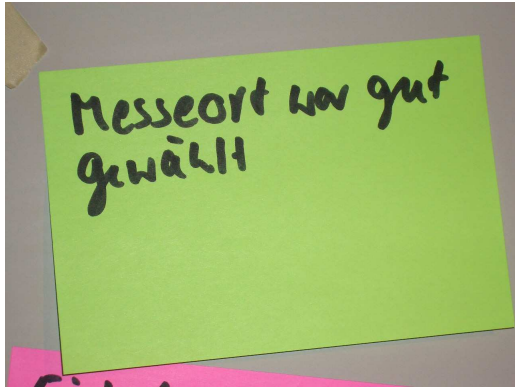 Messeort war gut
gewählt